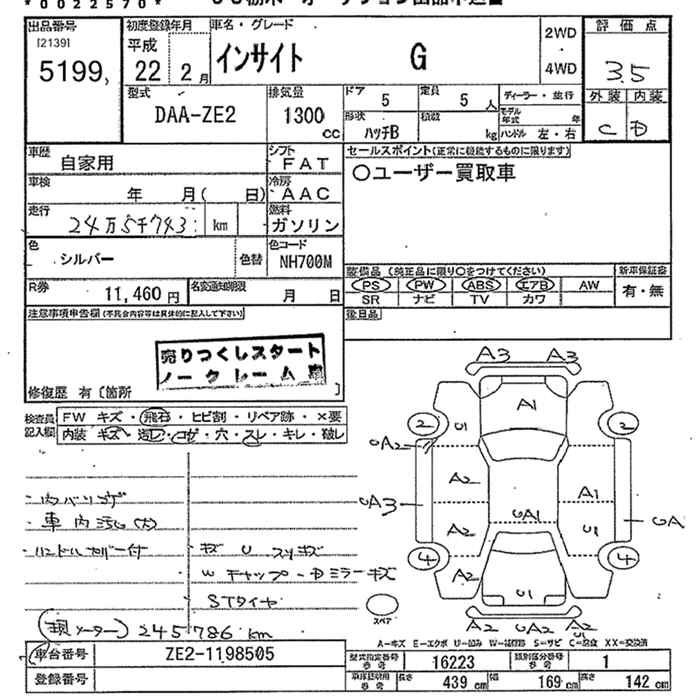 *0022570*
出品番号
[2139]
5199,
初度登録年月
平成
22年 2月
車名・グレード
インサイト G
2WD
4WD
評価点
3.5
外装 内装
C D
型式
DAA-ZE2
排気量
1300 cc
ドア 5
定員 5人
形状 ハッチB
積載 kg
ディーラー・並行
モデル年式 年
ハンドル 左・右
車歴
自家用
シフト
FAT
車検
年 月( 日)
冷房
AAC
走行
24万5千743 km
燃料
ガソリン
色
シルバー
色替
色コード
NH700M
R券
11,460円
名変通知期限
月 日
セールスポイント(正常に機能するものに限ります)
○ユーザー買取車
装備品(純正品に限り○をつけてください)
PS PW ABS エアB AW
SR ナビ TV カワ
新車保証書
有・無
後日品
注意事項申告欄(不具合内容等は具体的に記入して下さい)
売りつくしスタート
ノークレーム車
修復歴 有〔箇所 〕
検査員記入欄
FW キズ・飛石・ヒビ割・リペア跡・×要
内装 キズ・汚レ・コゲ・穴・スレ・キレ・破レ
車内汚レ(大)
ハンドルカバー付
キズ U スリキズ
STタイヤ
(現メーター) 245786 km
A3 A3
A1
2 2
U1
UA2
A2
UA3
A1
UA
UA1
A2
U1
4 4
A2
U1
A2 UA2 A2
スペア
A=キズ E=エクボ U=凹み W=補修跡 S=サビ C=腐食 XX=交換済
車台番号
ZE2-1198505
登録番号
型式指定番号 参考 16223
類別区分番号 参考 1
車検証記載 参考 長さ 439cm 幅 169cm 高さ 142cm